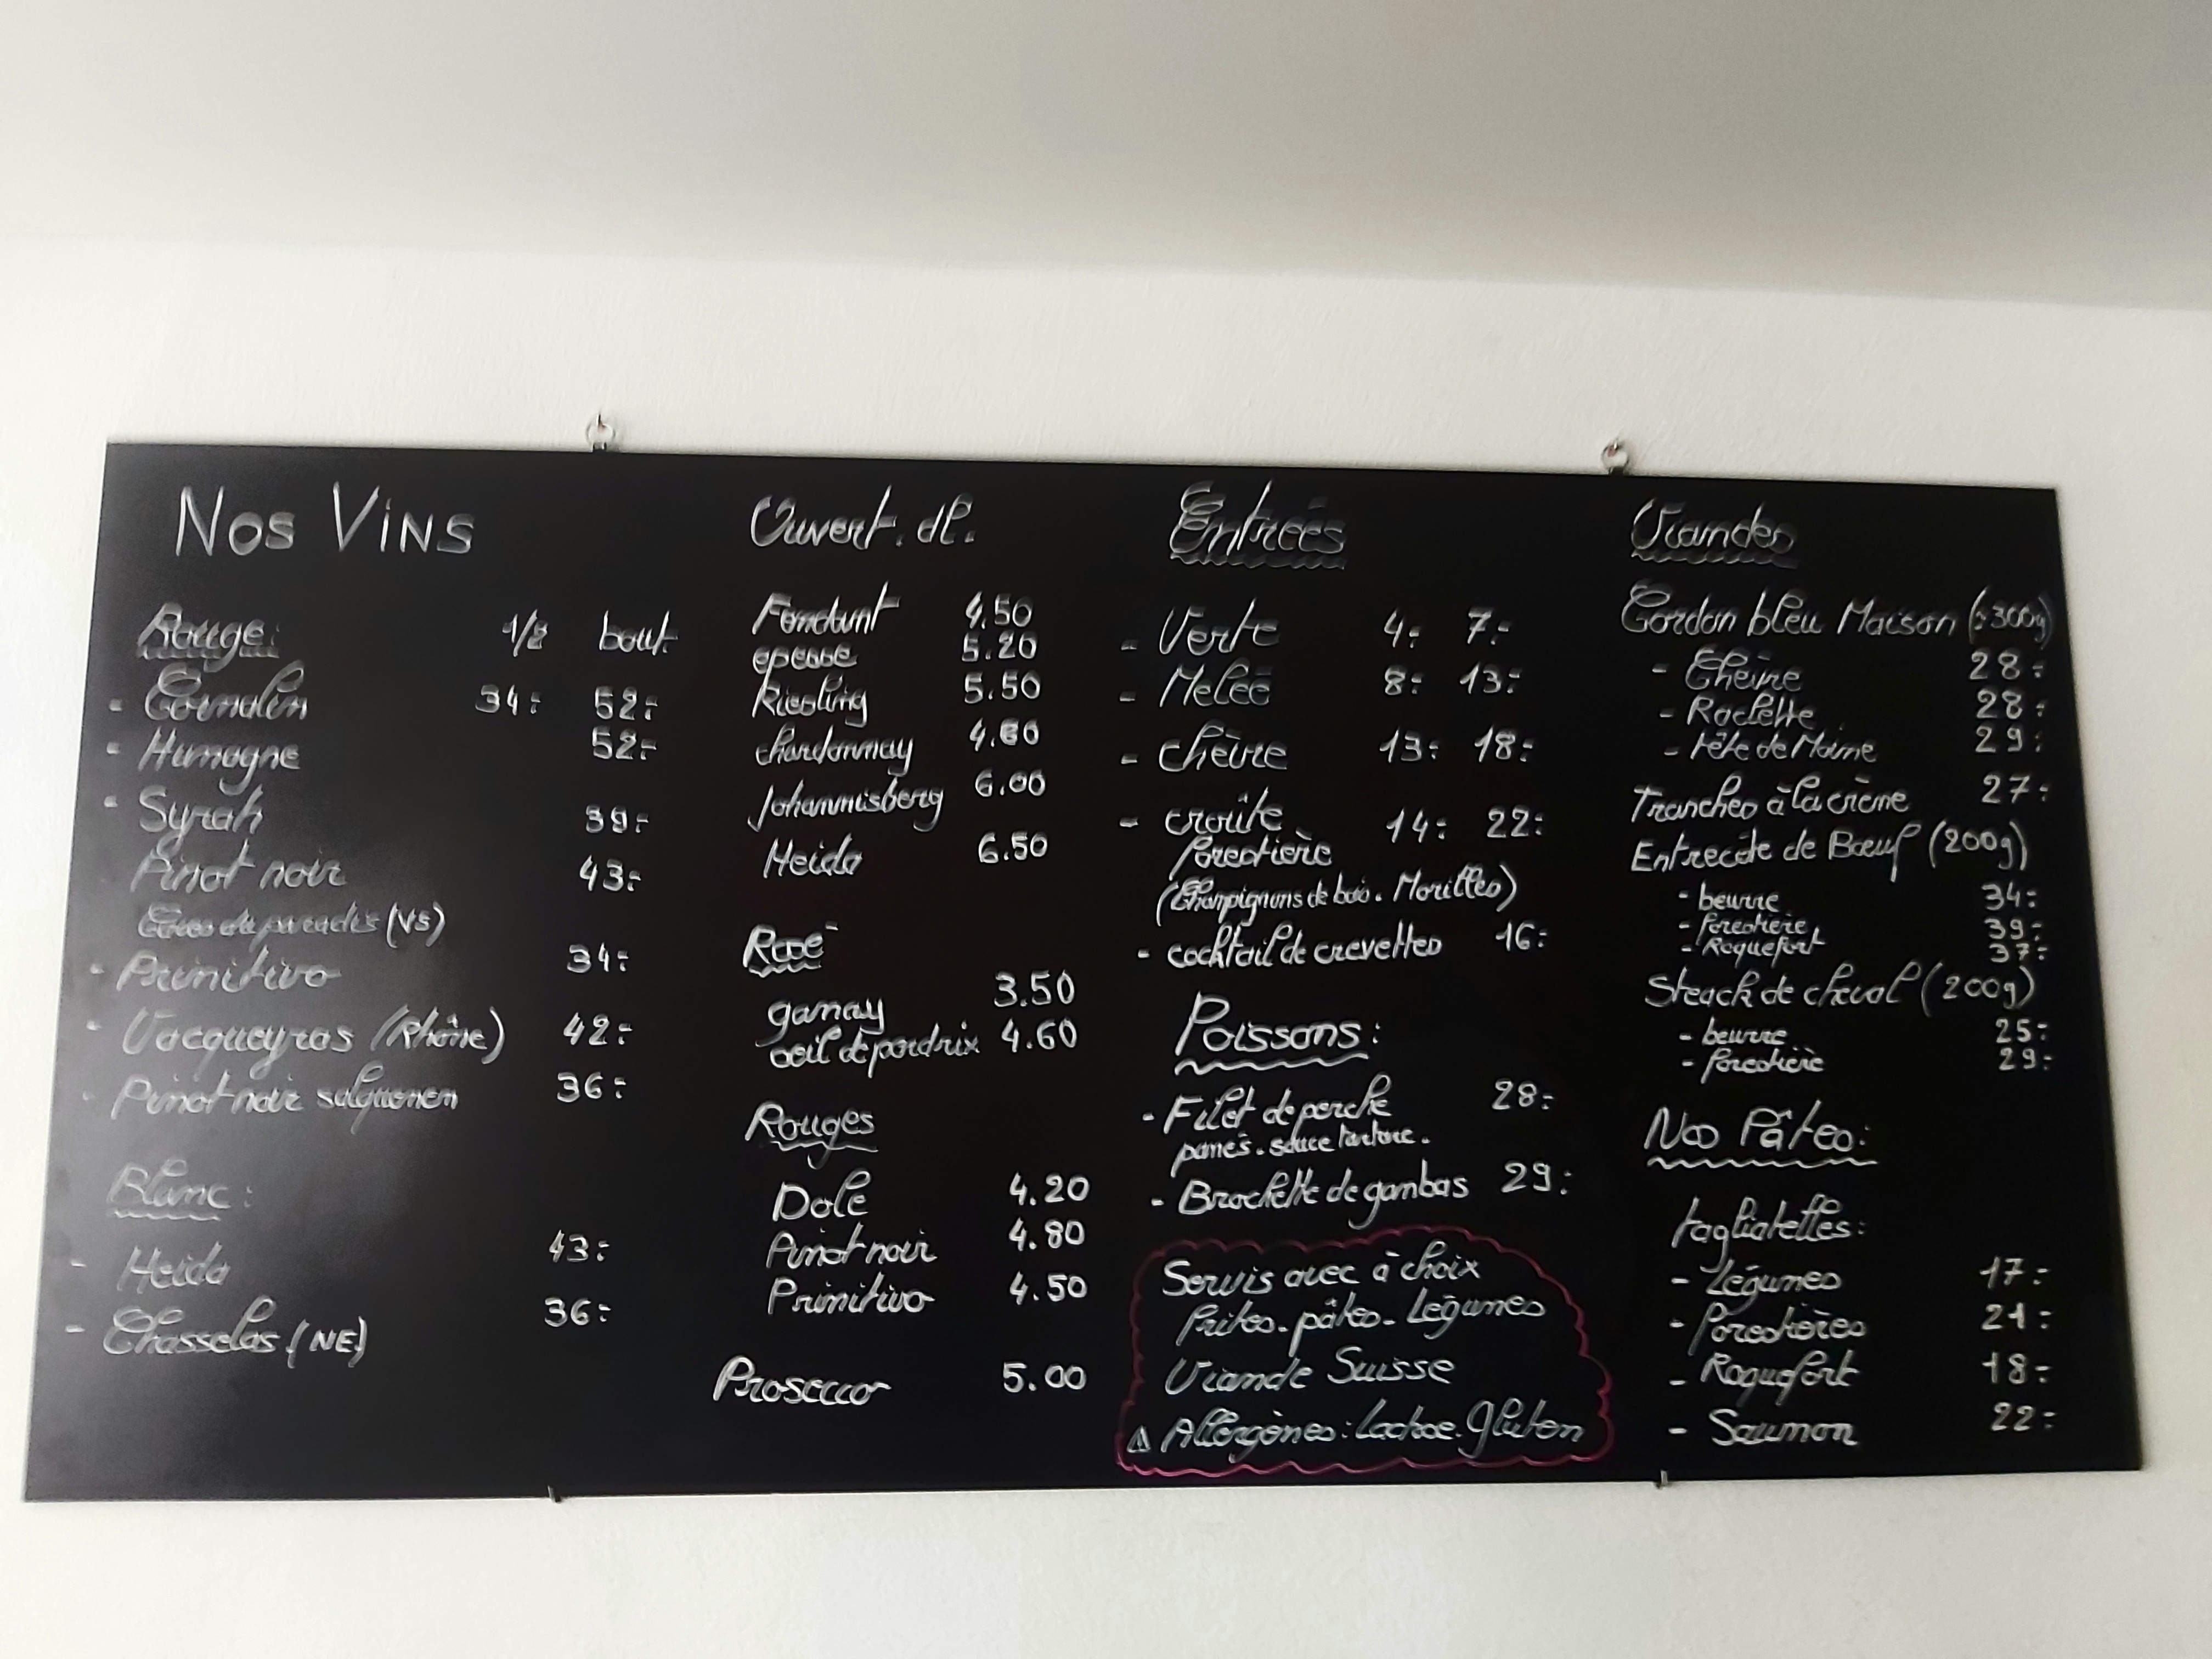 Nos Vins
Rouge: 1/2 bout.
- Cornalin 34.- 52.-
- Humagne 52.-
- Syrah 39.-
Pinot noir 43.-
paradis (VS)
- Primitivo 34.-
- Vacqueyras (Rhône) 42.-
- Pinot noir salquenen 36.-
Blanc:
- Heida 43.-
- Chasselas (NE) 36.-
Ouvert. dl.
Fondant 4.50
epesse 5.20
Riesling 5.50
chardonnay
Johannisberg 6.00
Heida 6.50
Rosé
gamay 3.50
oeil de perdrix 4.60
Rouges
Dole 4.20
Pinot noir 4.80
Primitivo 4.50
Prosecco 5.00
Entrées
- Verte 4.- 7.-
- Melée 8.- 13.-
- chèvre 13.- 18.-
- croûte 14.- 22.-
forestière
(Champignons de bois. Morilles)
- cocktail de crevettes 16.-
Poissons:
- Filet de perche 28.-
panés. sauce tartare.
- Brochette de gambas 29.-
Servis avec à choix
frites. pâtes. Légumes
Viande Suisse
⚠ Allergènes: Lactose. Gluten
Viandes
Cordon bleu Maison (±300g)
- Chèvre 28.-
- Raclette 28.-
- tête de Moine 29.-
Tranches à la crème 27.-
Entrecôte de Bœuf (200g)
- beurre 34.-
- forestière 39.-
- Roquefort 37.-
Steack de cheval (200g)
- beurre 25.-
- forestière 29.-
Nos Pâtes:
tagliatelles:
- Légumes 17.-
- forestières 21.-
- Roquefort 18.-
- Saumon 22.-